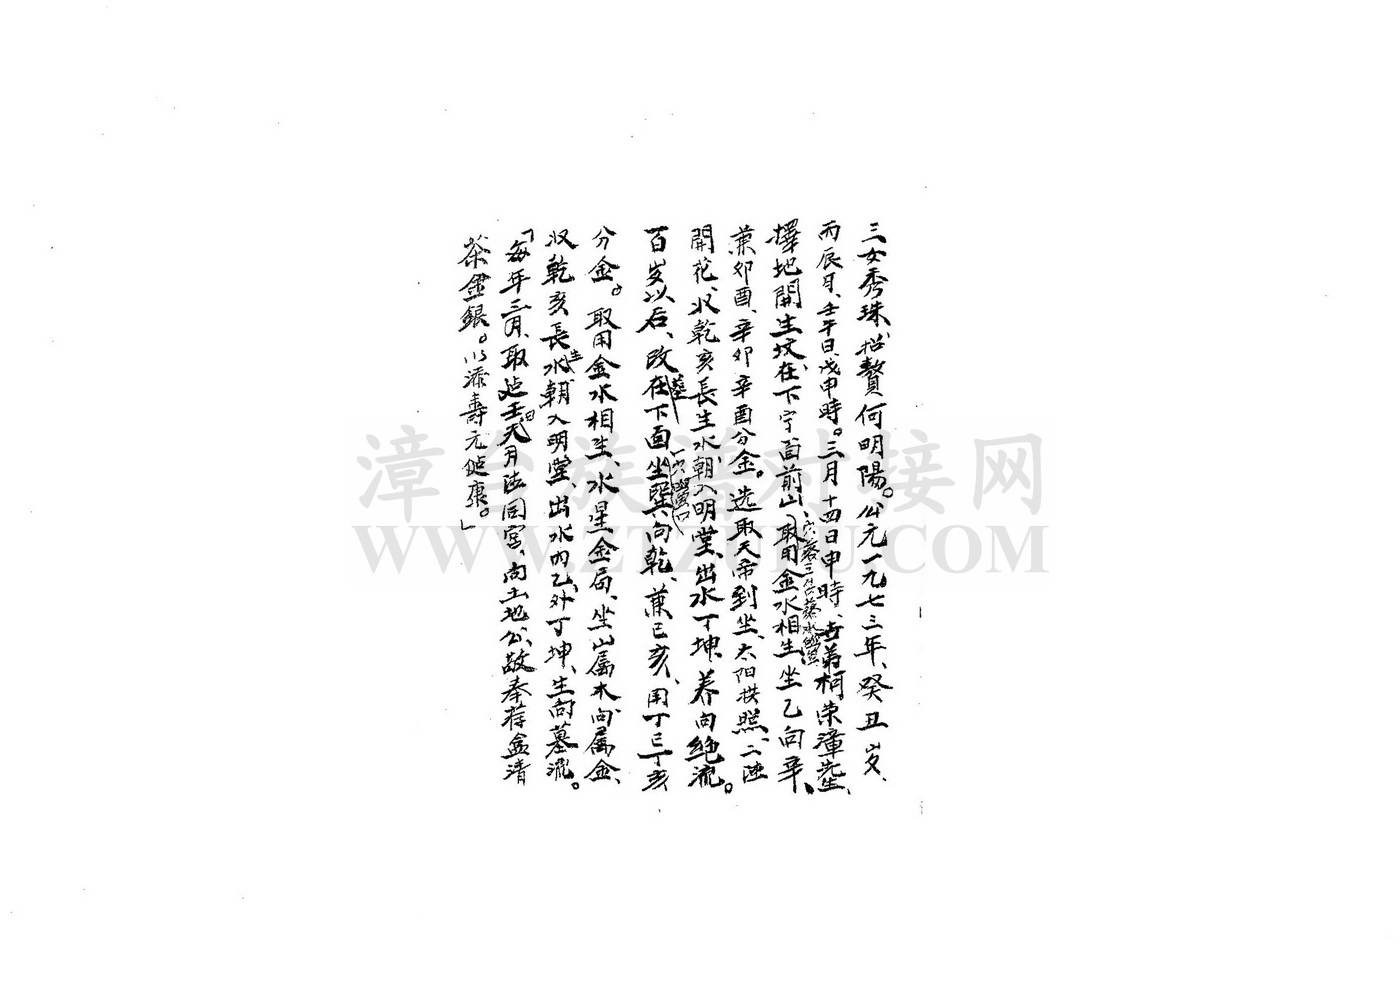 三女秀珠、招贅何明陽。公元一九七三年、癸丑岁、
丙辰月、壬午日、戊申時。三月十四日申時、古弟柯榮漳先生、
擇地開生坟、在下字面前山、取用金水相生、坐乙向辛、
兼卯酉、辛卯辛酉分金。选取天帝到坐、太阳拱照、二陡
開花、收乾亥長生水、朝入明堂、出水丁坤、养向绝流。
百岁以后、改在下面坐巽向乾、兼巳亥、用丁巳丁亥
分金。取用金水相生、水星金局、坐山属木、向属金、
收乾亥長生水、朝入明堂、出水内乙、外丁坤、生向墓流。
「每年三月、取壬日天月法同宫、向土地公、敬奉荐盒清
茶金銀。以添壽元健康。」
漳台族谱对接网
WWW.ZTZUPU.COM